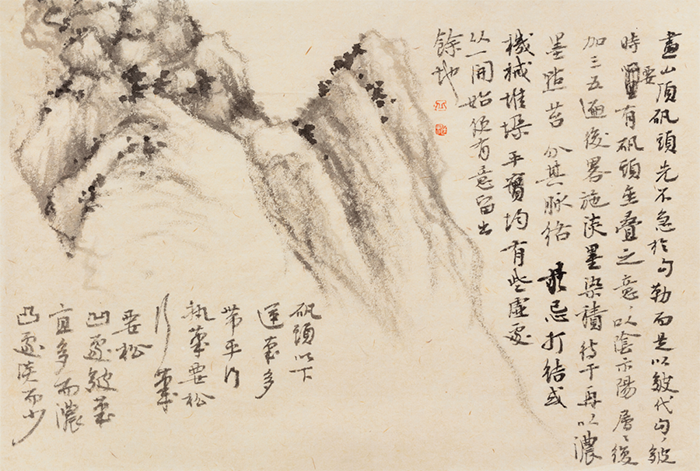 畫山頂矾頭先不急於勾勒而是以皴代勾皴
時要有矾頭重叠之意以陰示陽層層後
加三五遍後畧施淡墨染積待干再以濃
墨點苔分其脉絡忌打結或
機械堆垛平實均有些虛處
以一開始便有意留出
餘地
矾頭以下
運筆多
帶平行
執筆要松
行筆
要松
凹處皴筆
宜多而濃
凸處淡而少